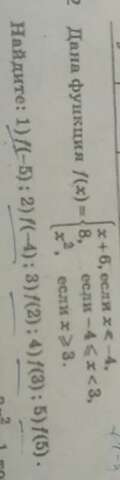 2 Дана функция f(x) = { x + 6, если x < -4,
8, если -4 ⩽ x < 3,
x², если x ⩾ 3.
Найдите: 1) f(-5); 2) f(-4); 3) f(2); 4) f(3); 5) f(5).